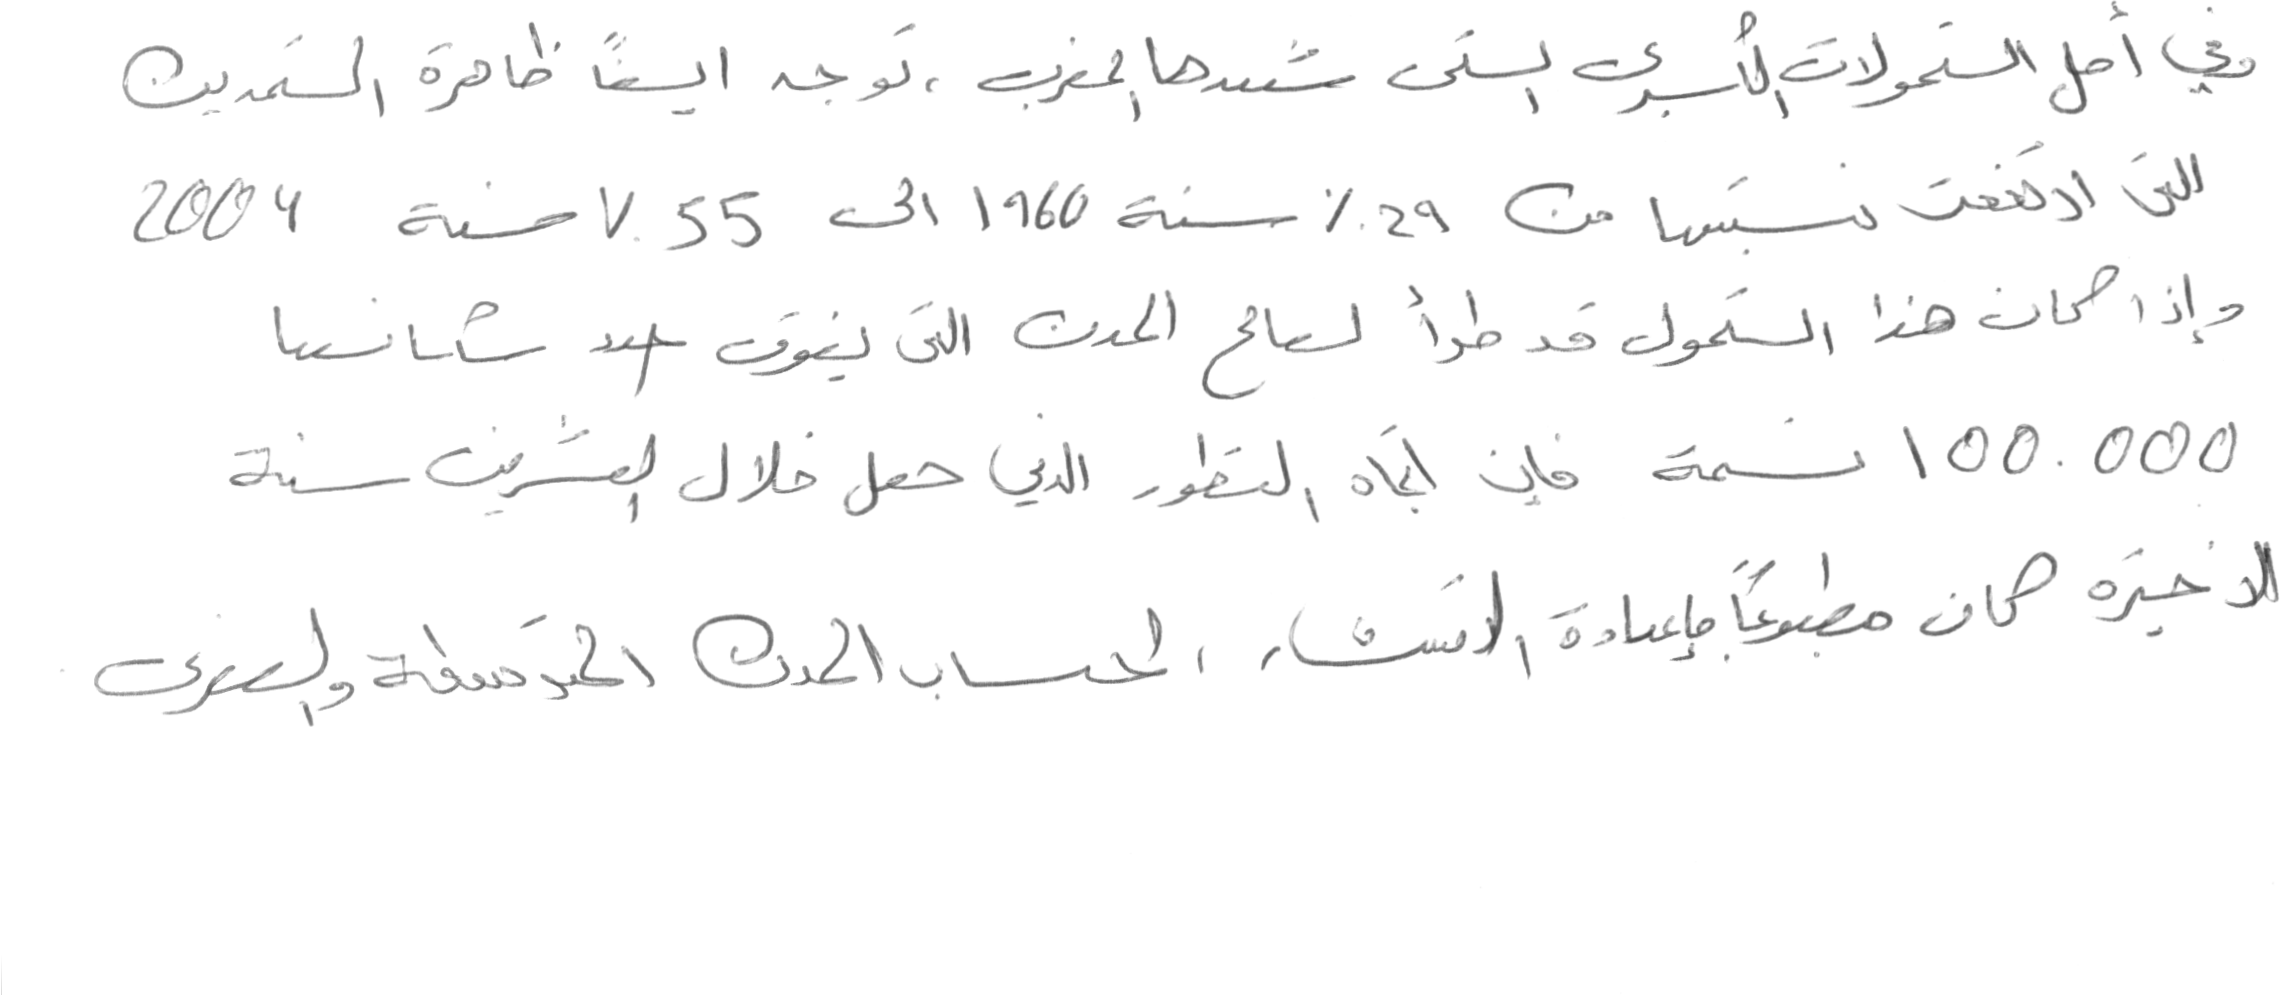 وفي أصل التحولات الأسرى التى شهدها المغرب ، توجد ايضًا ظاهرة التمدين
التى ارتفعت نسبتها من 29٪ سنة 1960 الى 55٪ سنة 2004
وإذا كان هذا التحول قد طرأ لصالح المدن التى يفوق عدد سكانها
100.000 نسمة فإن اتجاه التطور الذي حصل خلال العشرين سنة
الاخيرة كان مطبوعًا بإعادة الانتشار ، لحساب المدن المتوسطة والصغرى